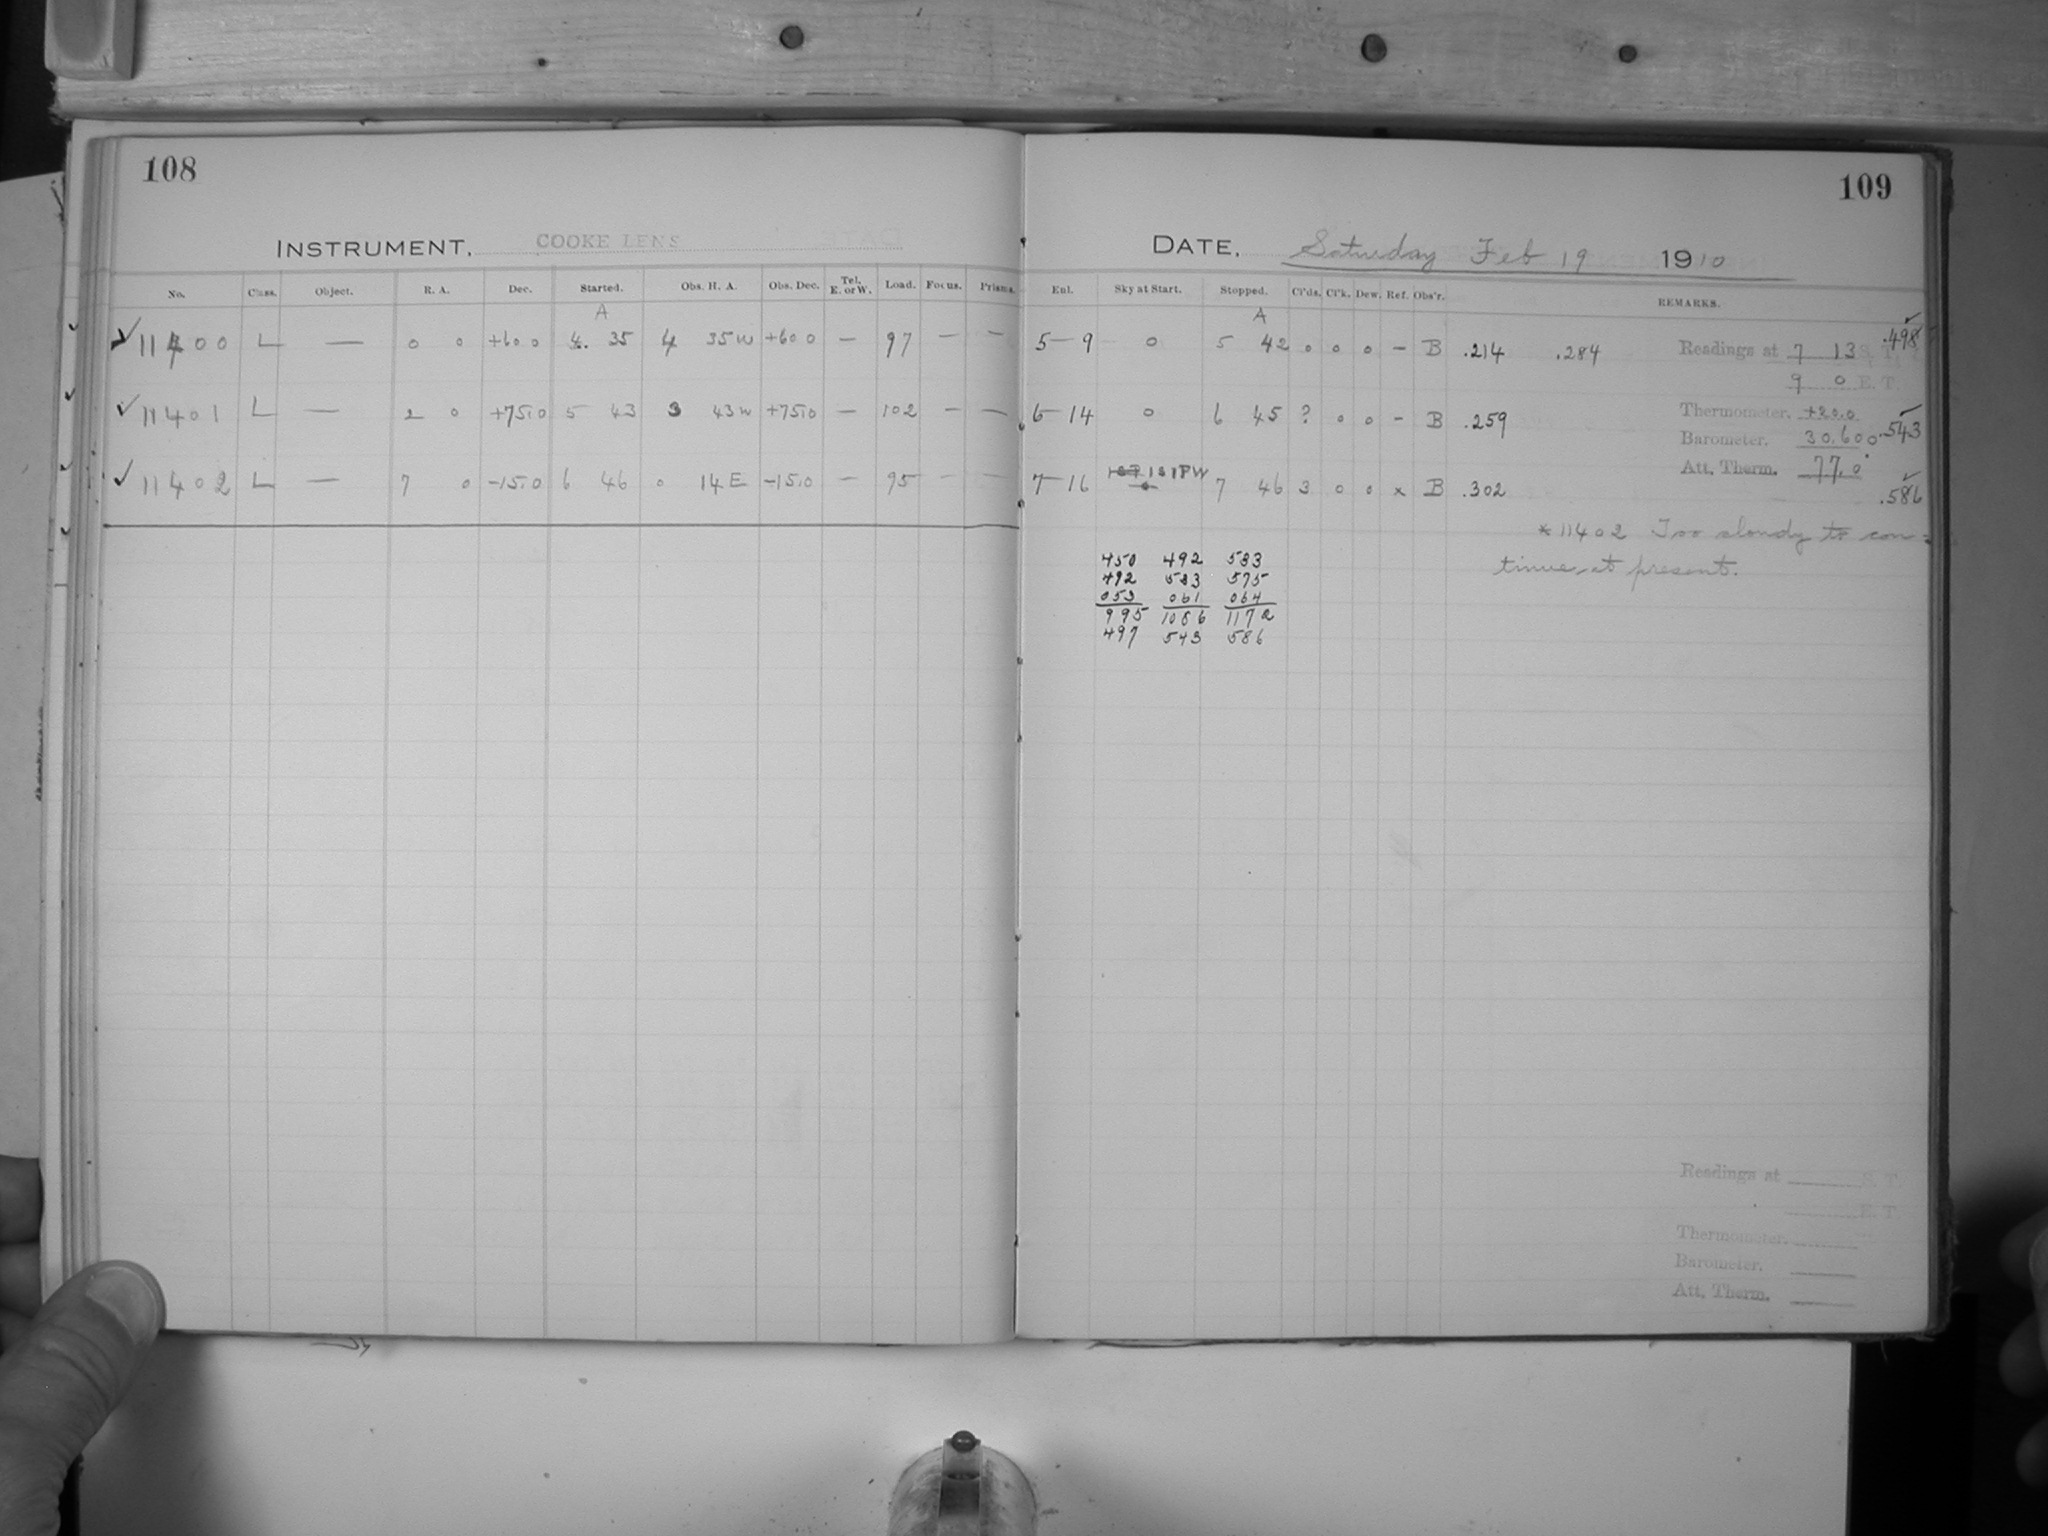 108
INSTRUMENT, COOKE LENS
No. Class. Object. R. A. Dec. Started. Obs. H. A. Obs. Dec. Tel. E. or W. Load. Focus. Prisms.
A
✓ 11400 L — 0 0 +60.0 4. 35 4 35W +60.0 — 97 — —
✓ 11401 L — 2 0 +75.0 5 43 3 43W +75.0 — 102 — —
✓ 11402 L — 7 0 -15.0 6 46 0 14E -15.0 — 95 — —
109
DATE, Saturday Feb 19 1910
Enl. Sky at Start. Stopped. Cl'ds. Cl'k. Dew. Ref. Obs'r. REMARKS.
A
5—9 0 5 42 0 0 0 — B .214 .284 Readings at 7 13 S. T. .498
9 0 E. T.
6—14 0 6 45 ? 0 0 - B .259 Thermometer. +20.0 .543
Barometer. 30.600
Att. Therm. 77.0
7—16 7 46 3 0 0 x B .302 .586
*11402 Too cloudy to con-
tinue at present.
450 492 533
492 533 575
053 061 064
995 1086 1172
497 543 586
Readings at S. T.
E. T.
Thermometer.
Barometer.
Att. Therm.